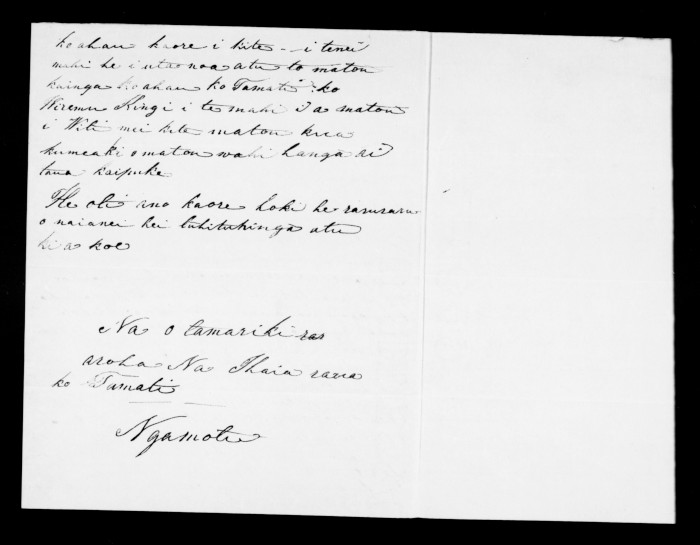 ko ahau kaore i kite - i tenei
mahi he i utaonoa atu to matou
kainga ko ahau ko Tamati ko
Wiremu Kingi i te mahi a matou
i Witi mei kite matou kua
kumeaki o matou wahi hanga ai
taua kaipuke
Heoti ano kaore hoki he raruraru
o naianei hei tuhituhinga atu
ki a koe
Na o tamariki
aroha Na Ihaia raua
ko Tamati
Ngamotu